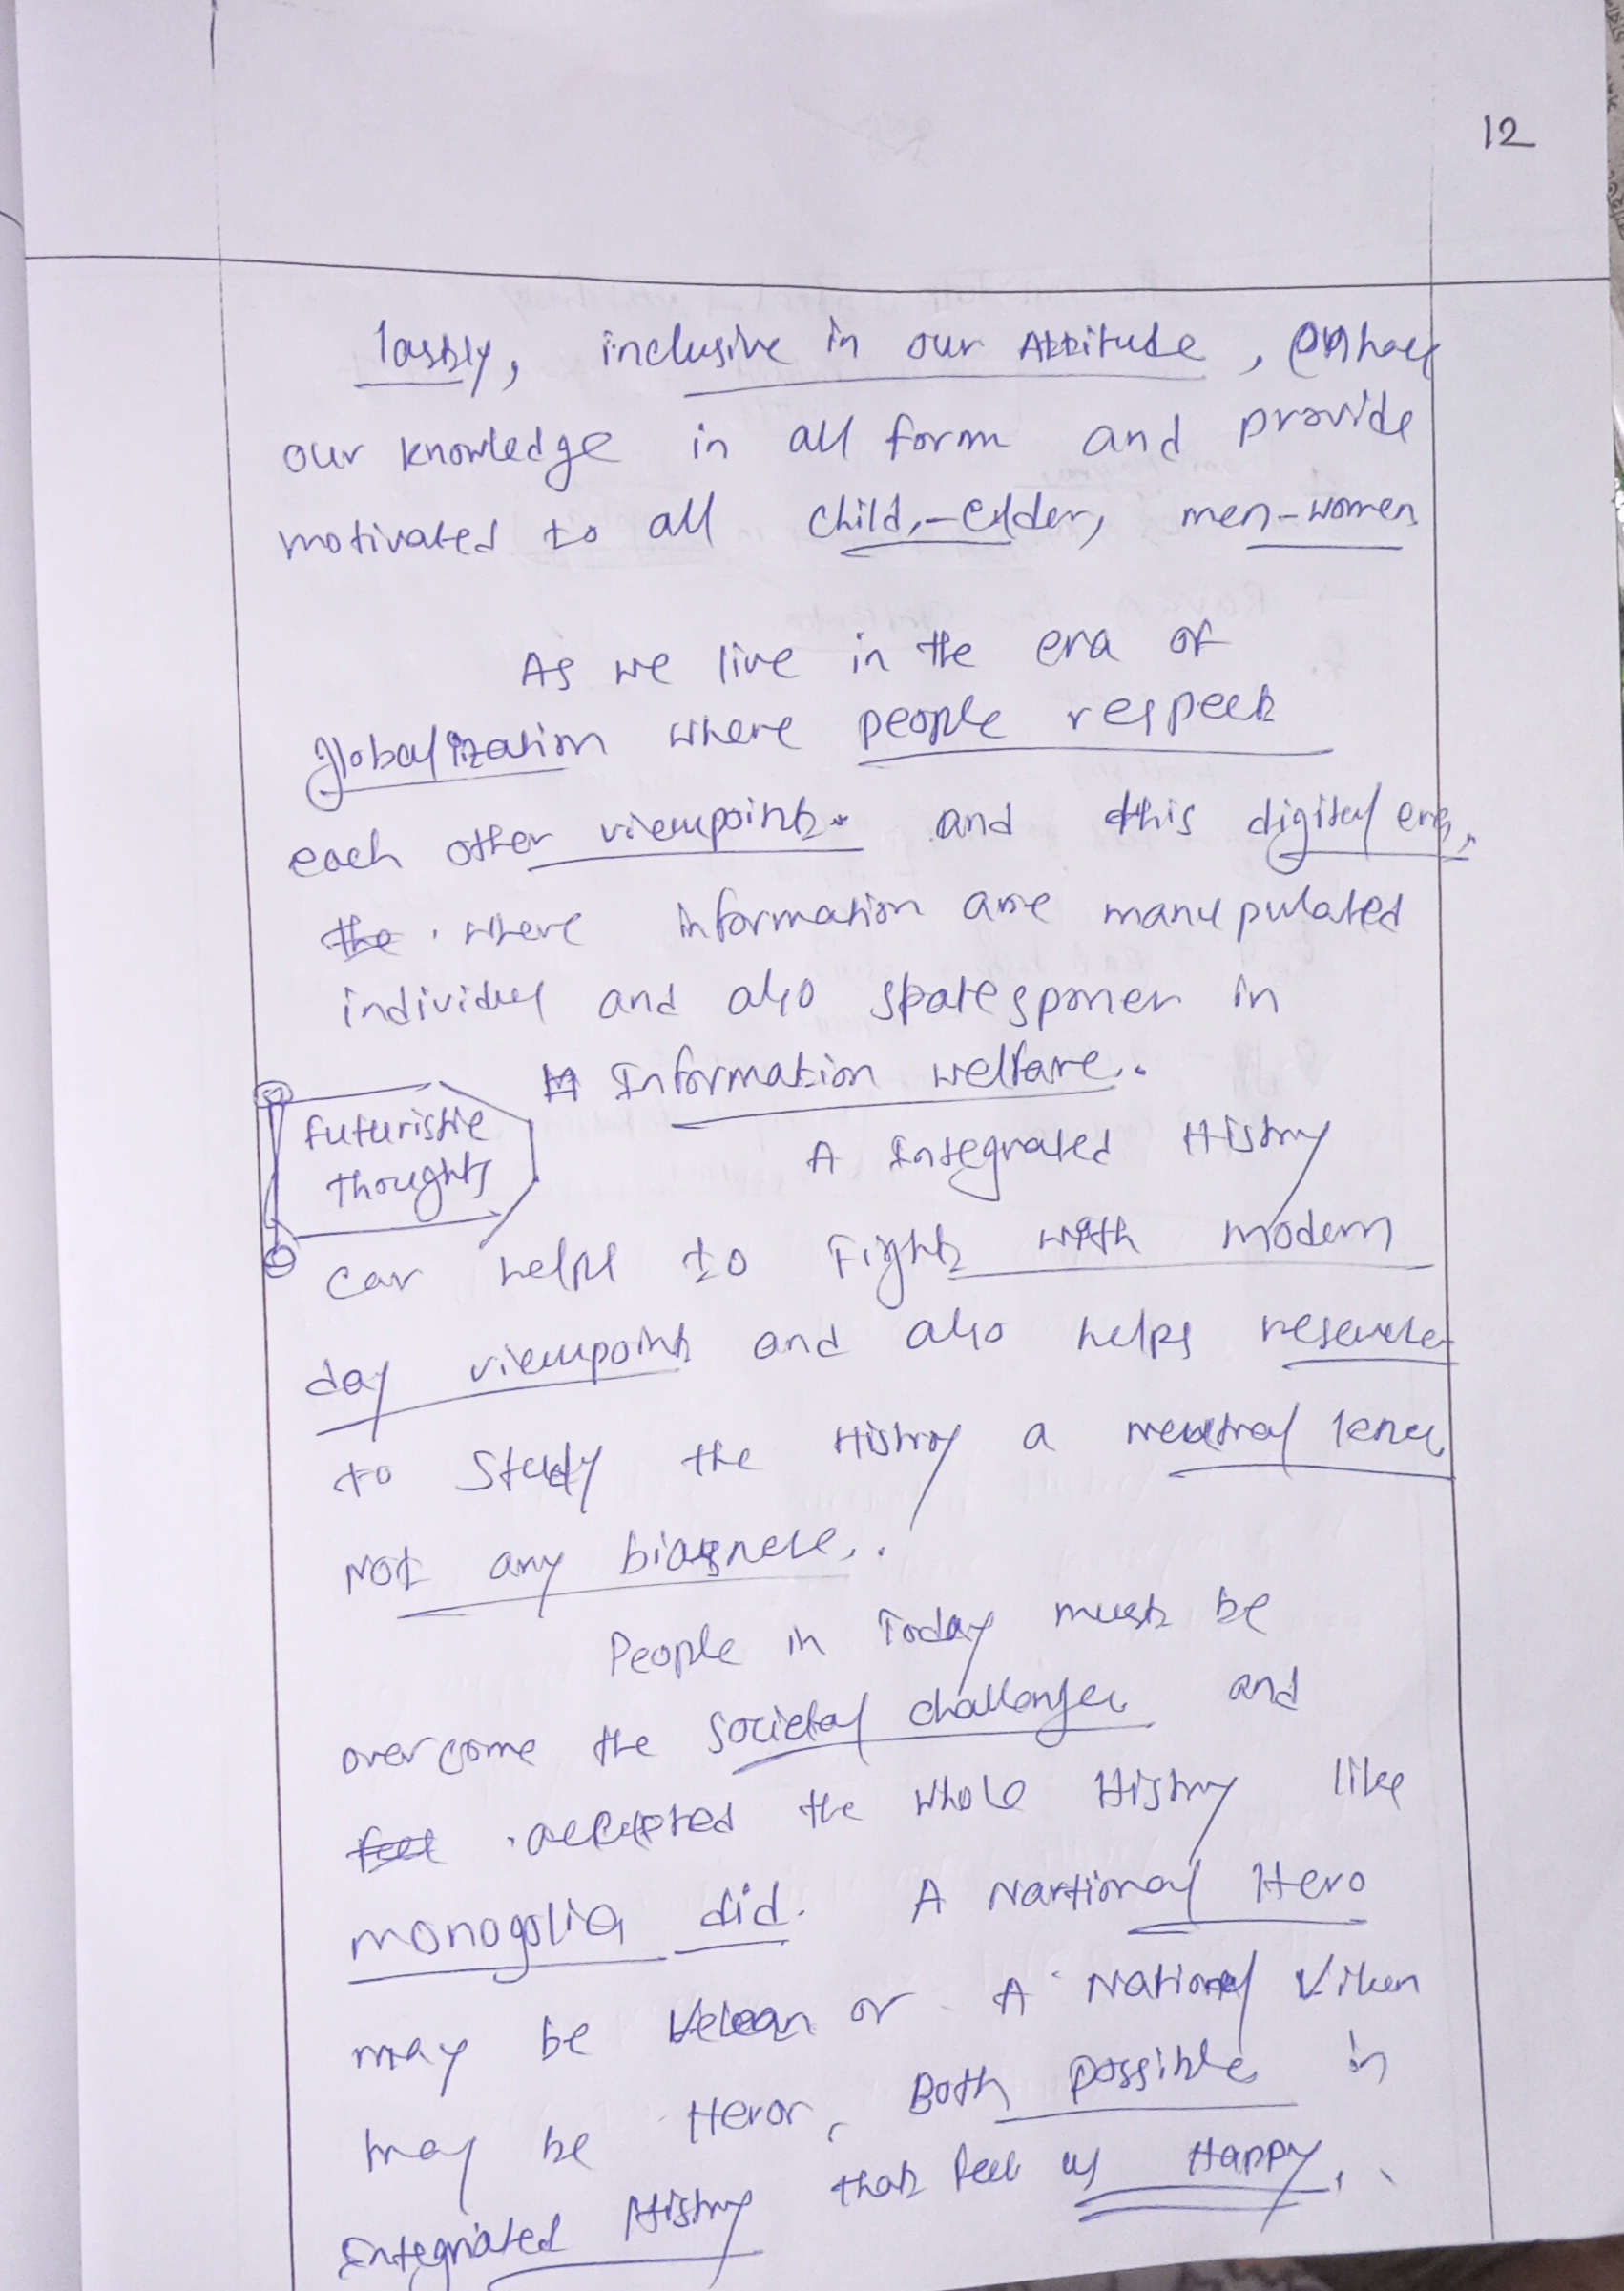 12
lastly, inclusive in our Attitude,
our knowledge in all form and provide
motivated to all child,-elder, men-women
As we live in the era of
globalization where people respect
each other viewpoint. and this digital era,
the . where information are manupulated
individual and also
in
Information welfare..
futuristic
thoughts
A Integrated History
can helps to Fight with modern
day viewpoint and also helps
to study the History a neutral
Not any
People in Today must be
overcome the societal challenges and
feel accepted the whole History like
monogolia did. A National Hero
may be or A National
may be Heror, Both possible in
Integrated History that feel us Happy.